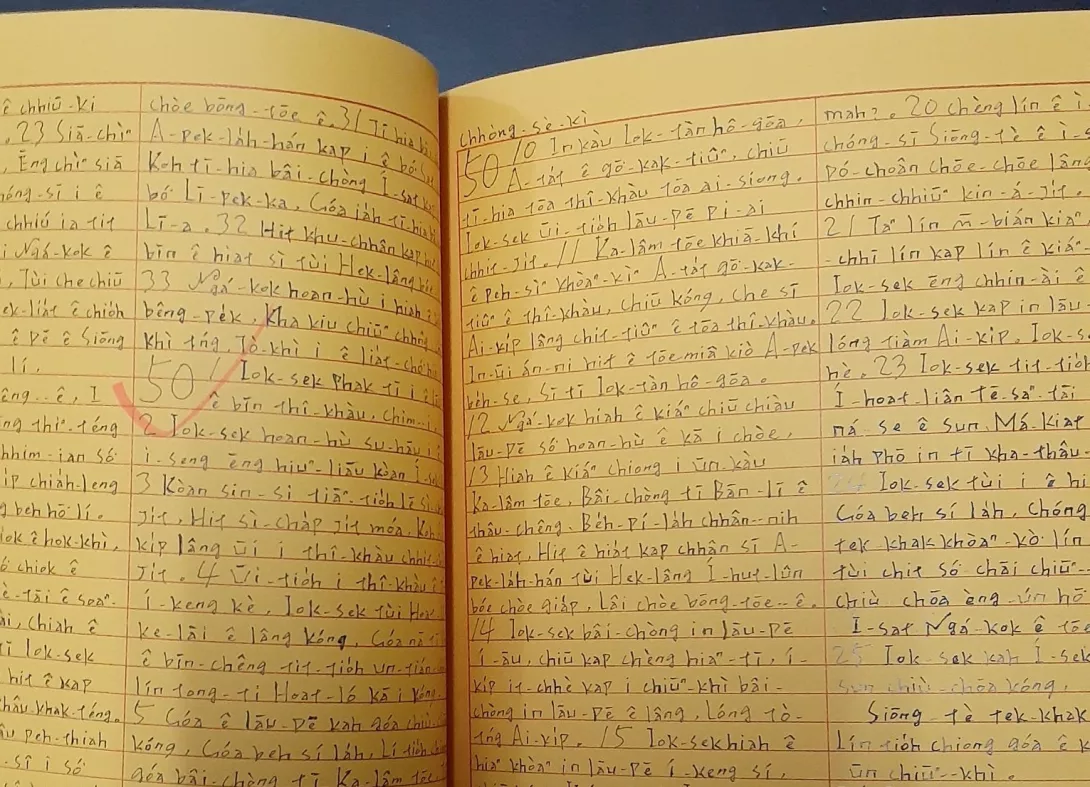 ê chhiū-ki
. 23 Siā-chìⁿ
, Ēng chìⁿ siā
hóng-sī i ê
chhiú ia tit
i Ngá-kok ê
, Tùi che chiū
ek-liát ê chióh
ê Pē ê Siōng
lí.
êng--ê, I
ng thiⁿ-téng
hhim-ian só
ip chiáh-leng
g beh hō lí.
iok ê hok-khì,
ó chiok ê
è-tāi ê soaⁿ.
ài, chiah ê
tī Iok-sek
hit ê kap
thâu-khak-téng.
ūu peh-thiah
-sî i só
chòe bōng-tōe ê. 31 Tī hia
A-pek-láh-hán kap i ê bó
Koh tī-hia bâi-chòng Í-sat
bó Lī-pek-ka, Góa iáh tī-hia
Lī-a. 32 Hit khu-chhân kap
bīn ê hiat sī tùi Hek-lâng
33 Ngá-kok hoan-hù i hiah ê
bêng-pék, Kha kiu chiūⁿ chhng
khì tńg, Tò-khì i ê liát-chó
50 1 Iok-sek Phak tī i ê
ê bīn thî-khàu, chim-i.
2 Iok-sek hoan-hù su-hāu i
i-seng ēng hiuⁿ-liāu koàn Í-sek
3 Koàn sin-si tiāⁿ-tióh lē sì
jit, Hit sì-cháp jit móa, Koh
kip lâng ūi i thî-khàu chhit-
jit. 4 Ūi-tióh i thî-khàu ê
í-keng kè, Iok-sek tùi Hoat
ke-lāi ê lâng kóng, Góa nā tī
ê bīn-chêng tit-tióh un-tián
lín tong-ti Hoat-ló kā i kóng,
5 Góa ê lāu-pē kah góa chiù
kóng, Góa beh sí láh, Lí tióh
góa bâi-chòng tī Ka-lâm tōe
Chhòng-sè-kì
50 10 In kàu Iok-tàn hô-gōa,
A-tát ê gō-kak-tiûⁿ, chiū
tī-hia tōa thî-khàu tōa ai-siong.
Iok-sek ūi-tióh lāu-pē pi-ai
chhit-jit. 11 Ka-lâm tōe khiā-khí
ê peh-sìⁿ khòaⁿ-kìⁿ A-tát gō-kak-
tiûⁿ ê thî-khàu, chiū kóng, Che sī
Ai-kip lâng chit-tiûⁿ ê tōa thî-khàu,
In-ūi án-ni hit ê tōe-miâ kiò A-pek
béh-se, Sī tī Iok-tàn hô-gōa.
12 Ngá-kok hiah ê kiáⁿ chiū chiàu
lāu-pē só hoan-hù ê kā i chòe,
13 Hiah ê kiáⁿ chiong i ūn-kàu
Ka-lâm tōe, Bâi-chòng tī Bān-lī ê
thâu-chêng. Béh-pí-láh chhân--nih
ê hiat, Hit ê hiát kap chhân sī A-
pek-láh-hán tùi Hek-lâng Í-hut-lūn
bóe chòe giáp, Lâi chòe bōng-tōe--ê.
14 Iok-sek bâi-chòng in lāu-pē
í-āu, chiū kap chèng hiaⁿ-tī, í-
kip it-chhè kap i chiūⁿ-khì bâi-
chòng in lāu-pē ê lâng, Lóng tò-
tńg Ai-kip. 15 Iok-sek hiah ê
hiaⁿ khòaⁿ in lāu-pē í-keng sí,
mah?. 20 chèng lín ê ì
chóng-sī Siōng-tè ê ì-s
pó-choân chōe-chōe lâng
chhin-chhiūⁿ kin-á-jit.
21 Taⁿ lín m̄-bián kiaⁿ
-chhī lín kap lín ê kiáⁿ-
Iok-sek ēng chhin-ài ê
22 Iok-sek kap in lāu
lóng tiàm Ai-kip. Iok-s
hè. 23 Iok-sek tit-tióh
Í-hoat liân Tē-saⁿ-tāi
ná-se ê Sun. Má. Kiat
iáh Phō in tī kha-thâu-
24 Iok-sek tùi i ê hi
Góa beh sí láh, Chóng
tek-khak khòaⁿ-kò lín
tùi chit só chāi chiūⁿ-
Chiù chōa èng-ún hō
Í-sat Ngá-kok ê tōe
25 Iok-sek kah Í-sek
sun chiù-chōa kóng,
Siōng-tè tek-khak
lín tióh chiong góa ê k
ūn chiūⁿ--khì.